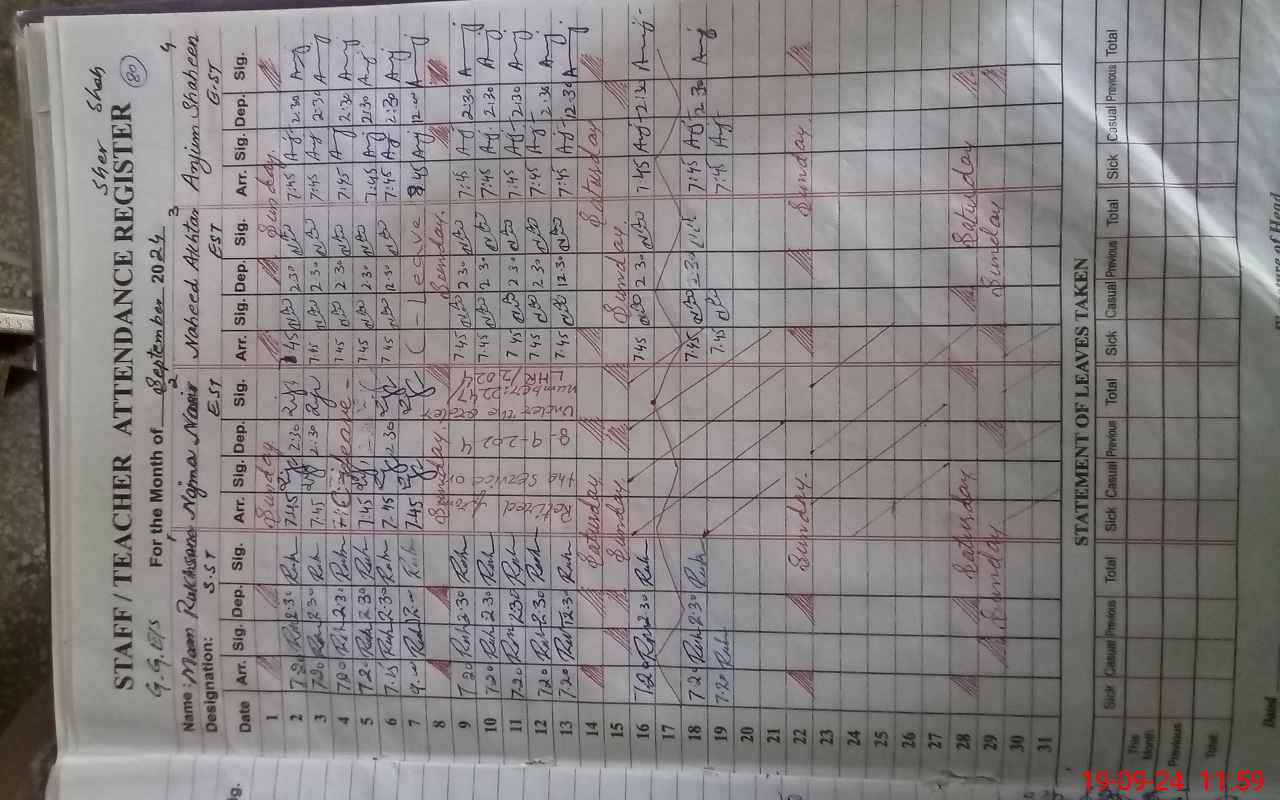 Sher Shah
STAFF / TEACHER ATTENDANCE REGISTER
80
G.G.E/S For the Month of September 2024
1 2 3 4
Name: Maam Rukhsana Najma Nasir Naheed Akhtar Anjum Shaheen
Designation: S.S.T EST EST E.ST
Date Arr. Sig. Dep. Sig. Arr. Sig. Dep. Sig. Arr. Sig. Dep. Sig. Arr. Sig. Dep. Sig.
1 Sunday Sunday
2 7:20 Ruh 2:30 Ruh 7:45 2:30 7:45 2:30 7:45 Anj 2:30 Anj
3 7:20 Ruh 2:30 Ruh 7:45 2:30 7:45 2:30 7:45 Anj 2:30 Anj
4 7:20 Ruh 2:30 Ruh leave 7:45 2:30 7:45 Anj 2:30 Anj
5 7:20 Ruh 2:30 Ruh 7:45 7:45 2:30 7:45 Anj 2:30 Anj
6 7:15 Ruh 2:30 Ruh 7:45 2:30 7:45 12:30 7:45 Anj 2:30 Anj
7 Ruh 12 Ruh 7:45 Leave 8:45 Anj 12:00 Anj
8 Sunday. Sunday.
9 7:20 Ruh 2:30 Ruh 7:45 2:30 7:45 Anj 2:30 Anj
10 7:20 Ruh 2:30 Ruh 7:45 2:30 7:45 Anj 2:30 Anj
11 7:20 Ruh 2:30 Ruh 7:45 2:30 7:45 Anj 2:30 Anj
12 7:20 Ruh 2:30 Ruh 7:45 2:30 7:45 Anj 2:30 Anj
13 7:20 Ruh 12:30 Ruh 7:45 12:30 7:45 Anj 12:30 Anj
Retired from
the service on
8-9-2024
Under the order
number: 2247/
LHR/2024
14 Saturday Saturday
15 Sunday. Sunday.
16 7:20 Ruh 2:30 Ruh 7:45 2:30 7:45 Anj 2:30 Anj
17
18 7:20 Ruh 2:30 Ruh 7:45 2:30 7:45 Anj 2:30 Anj
19 7:20 Ruh 7:45 7:45 Anj
20
21
22 Sunday. Sunday.
23
24
25
26
27
28 Saturday Saturday
29 Sunday Sunday
30
31
STATEMENT OF LEAVES TAKEN
Sick Casual Previous Total Sick Casual Previous Total Sick Casual Previous Total Sick Casual Previous Total
This Month
Previous
Total:
Dated
of Head
ig.
19-09-24 11:59